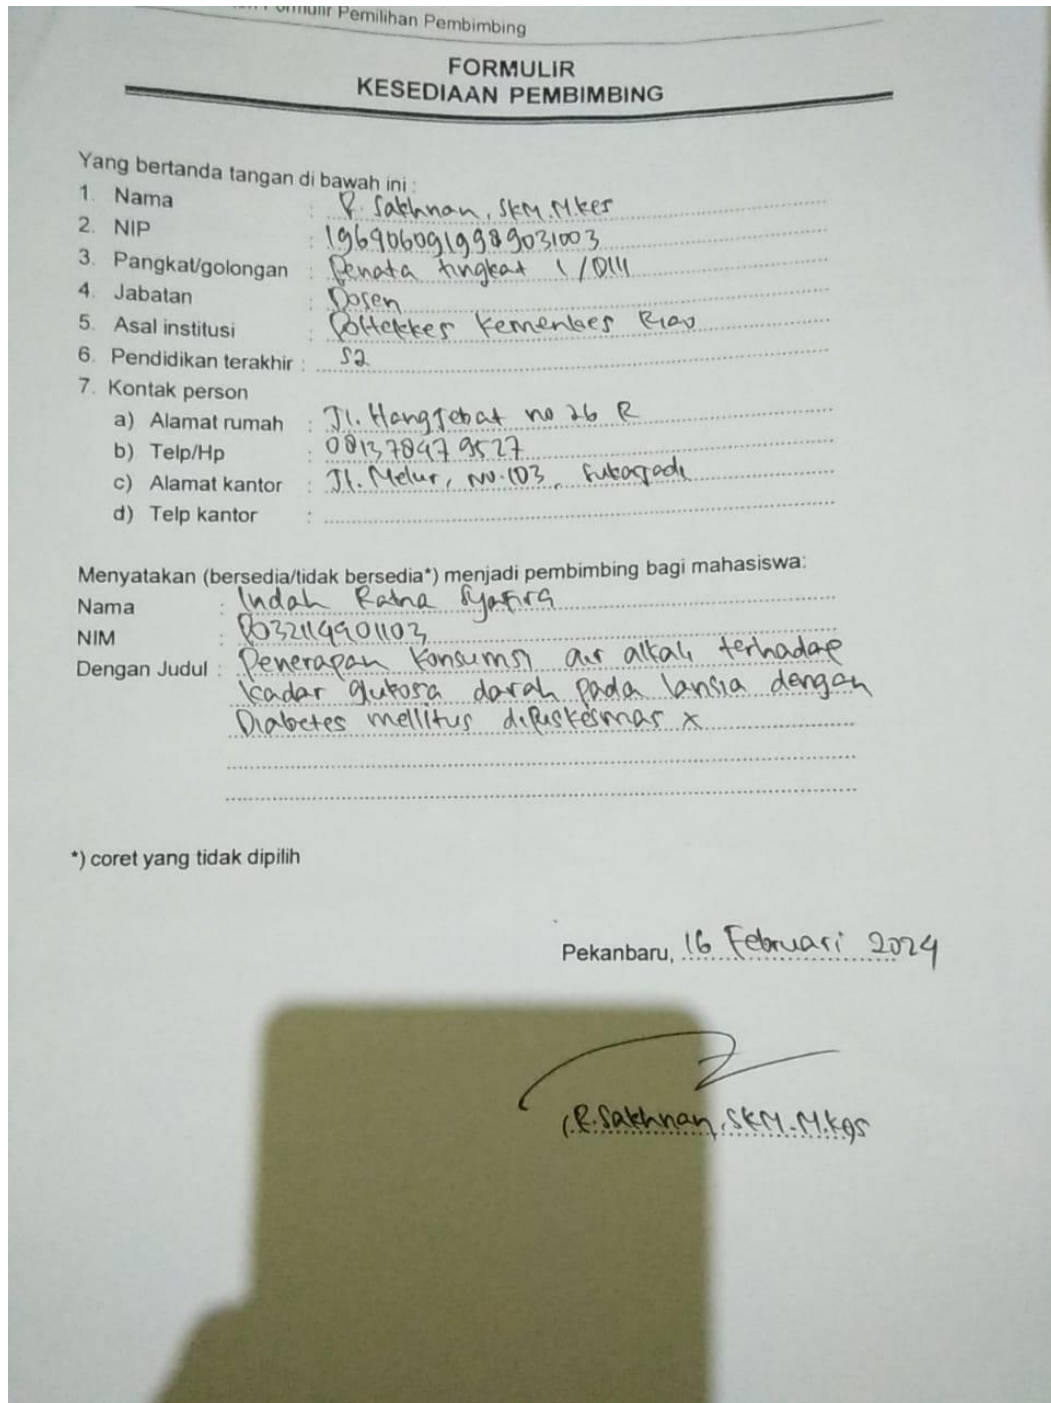 Formulir Pemilihan Pembimbing
FORMULIR
KESEDIAAN PEMBIMBING
Yang bertanda tangan di bawah ini :
1. Nama : R. Sakhnan, SKM.M.Kes
2. NIP :
3. Pangkat/golongan : Penata tingkat 1 / DIII
4. Jabatan : Dosen
5. Asal institusi : Poltekkes Kemenkes Riau
6. Pendidikan terakhir : S2
7. Kontak person
a) Alamat rumah : Jl. Hang Jebat no 26 R
b) Telp/Hp : 081378479527
c) Alamat kantor : Jl. Melur, No.103, Sukajadi
d) Telp kantor :
Menyatakan (bersedia/tidak bersedia*) menjadi pembimbing bagi mahasiswa:
Nama : Indah Ratna Syafira
NIM : P032114901103
Dengan Judul : Penerapan Konsumsi air alkali terhadap
kadar glukosa darah pada lansia dengan
Diabetes mellitus di Puskesmas X
*) coret yang tidak dipilih
Pekanbaru, 16 Februari 2024
(R.Sakhnan, SKM.M.Kes